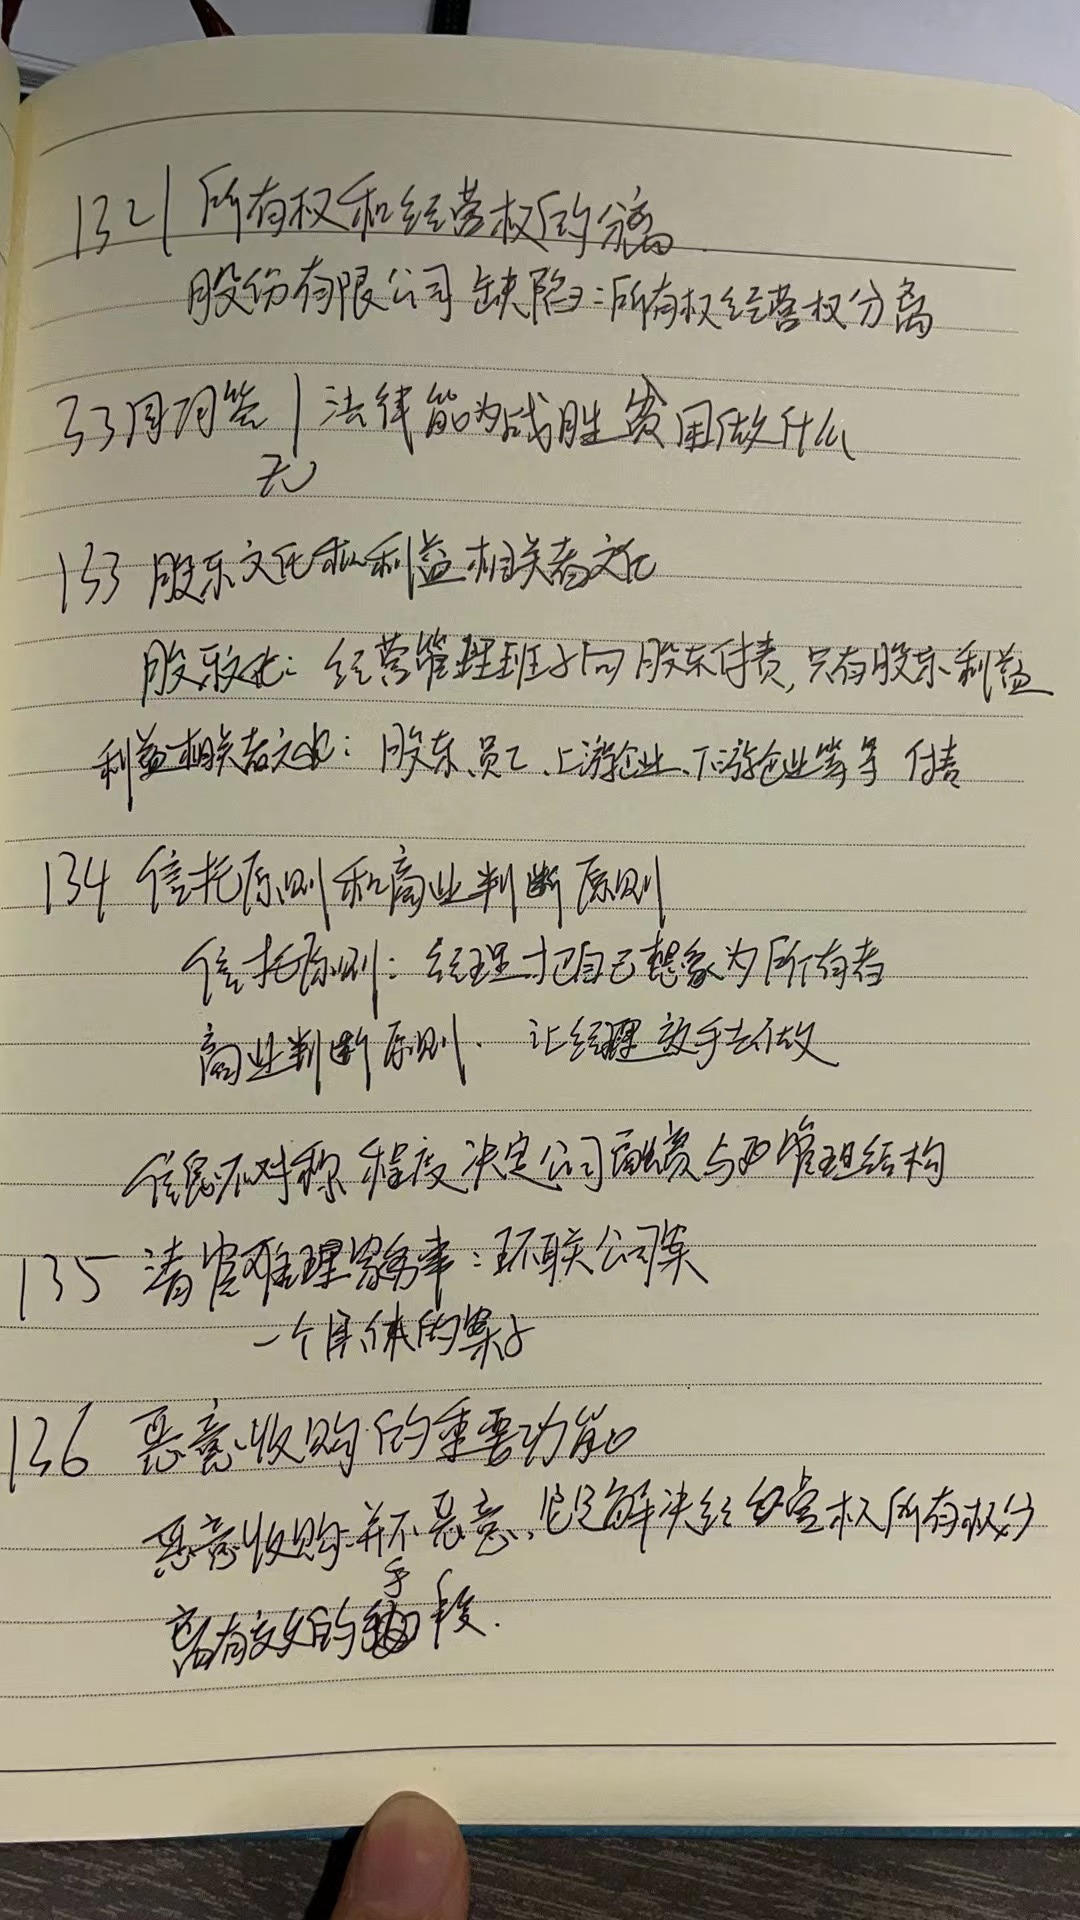 132| 所有权和经营权的分离
股份有限公司缺陷：所有权经营权分离
33周问答|法律能为战胜费用做什么
无
133 股东文化和利益相关者文化
股东文化：经营管理班子向股东付责,只有股东利益
利益相关者文化：股东、员工、上游企业、下游企业等等 付责
134 信托原则和商业判断原则
信托原则：经理把自己想象为所有者
商业判断原则、让经理放手去做
信息不对称程度决定公司融资与管理结构
135 清官难理家务事：环联公司案
一个具体的案子
136 恶意收购的重要功能
恶意收购并不恶意,它是解决经营权所有权分
离有效的手段.